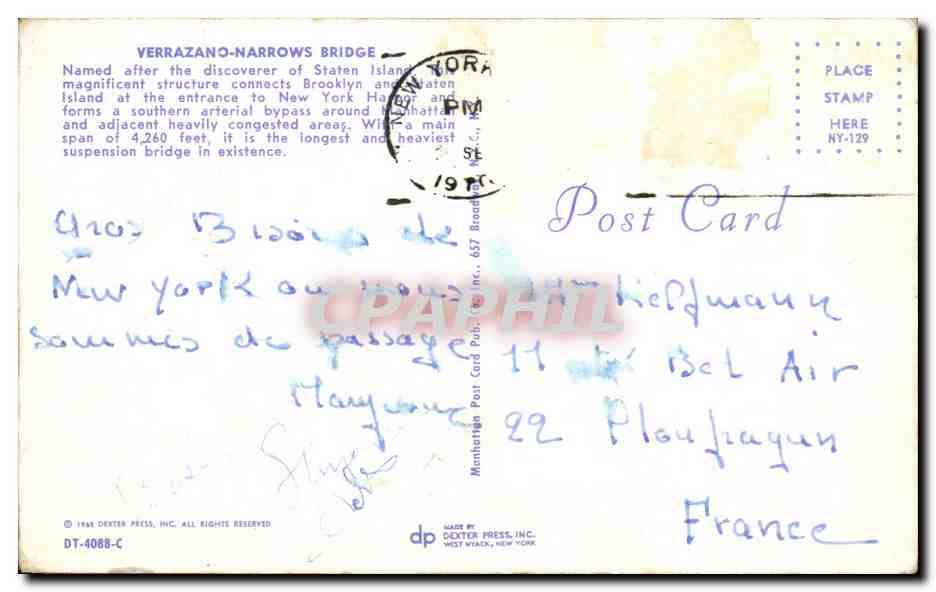 VERRAZANO-NARROWS BRIDGE
Named after the discoverer of Staten Island, this
magnificent structure connects Brooklyn and Staten
Island at the entrance to New York Harbor and
forms a southern arterial bypass around Manhattan
and adjacent heavily congested areas. With a main
span of 4,260 feet, it is the longest and heaviest
suspension bridge in existence.
NEW YORK
PM
SE
19
PLACE
STAMP
HERE
NY-129
Post Card
Gros Bisous de
New York ou nous
sommes de passage
11 Bel Air
22 Ploufragan
France
Manhattan Post Card Pub. Co., Inc., 657 Broadway, N.
CPAPHIL
© 1965 DEXTER PRESS, INC. ALL RIGHTS RESERVED
DT-4088-C
dp
MADE BY
DEXTER PRESS, INC.
WEST NYACK, NEW YORK